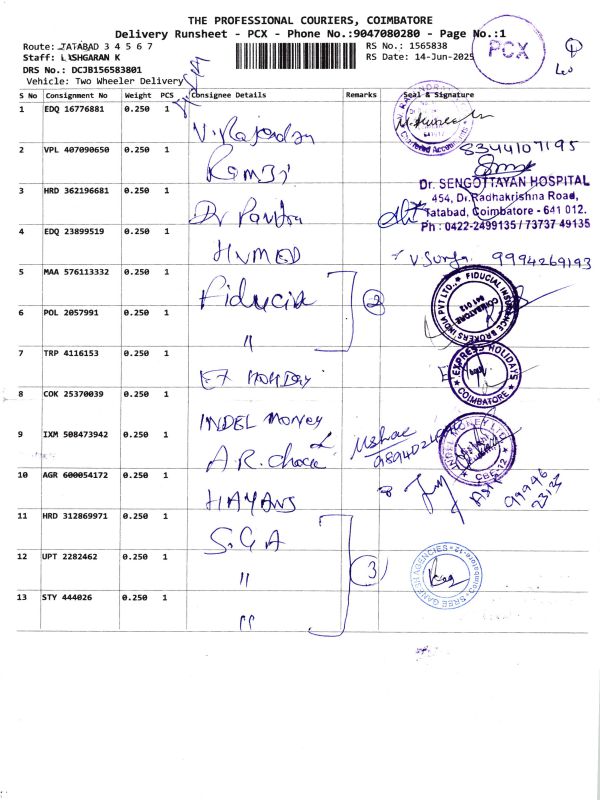 THE PROFESSIONAL COURIERS, COIMBATORE
Delivery Runsheet - PCX - Phone No.:9047080280 - Page No.:1
Route: TATABAD 3 4 5 6 7
RS No.: 1565838
Staff: LISHGARAN K
RS Date: 14-Jun-2025
DRS No.: DCJB156583801
Vehicle: Two Wheeler Delivery
PCX
S No Consignment No Weight PCS Consignee Details Remarks Seal & Signature
1 EDQ 16776881 0.250 1 V. Rajendran
Chartered Accountants
8344107195
2 VPL 407090650 0.250 1
Dr. SENGOTTAYAN HOSPITAL
454, Dr.Radhakrishna Road,
Tatabad, Coimbatore - 641 012.
Ph : 0422-2499135 / 73737 49135
3 HRD 362196681 0.250 1 Dr
4 EDQ 23899519 0.250 1
9994269193
5 MAA 576113332 0.250 1 Fiducia 2
FIDUCIAL INSURANCE BROKERS INDIA PVT LTD.,
COIMBATORE 641 012
6 POL 2057991 0.250 1 "
7 TRP 4116153 0.250 1 EX HOLIDAY
EXPRESS HOLIDAYS
COIMBATORE
8 COK 25370039 0.250 1 INDEL MONEY
INDEL MONEY LTD
CBE-12
9 IXM 508473942 0.250 1 A.R.
10 AGR 600054172 0.250 1 HAYANS
99996
11 HRD 312869971 0.250 1 S.G.A
12 UPT 2282462 0.250 1 " 3
SREE GANESH AGENCIES
Coimbatore-12
13 STY 444026 0.250 1 "